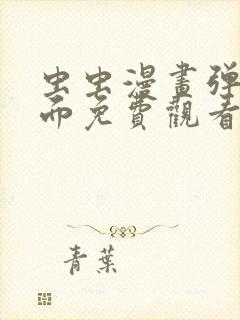 虫虫漫畫弹
而免費觀看
青葉